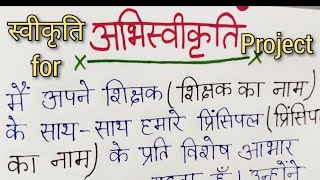 स्वीकृति
for
अभिस्वीकृति
Project
मैं अपने शिक्षक (शिक्षक का नाम)
के साथ-साथ हमारे प्रिंसिपल (प्रिंसिपल
का नाम) के प्रति विशेष आभार
हूँ। उन्होंने